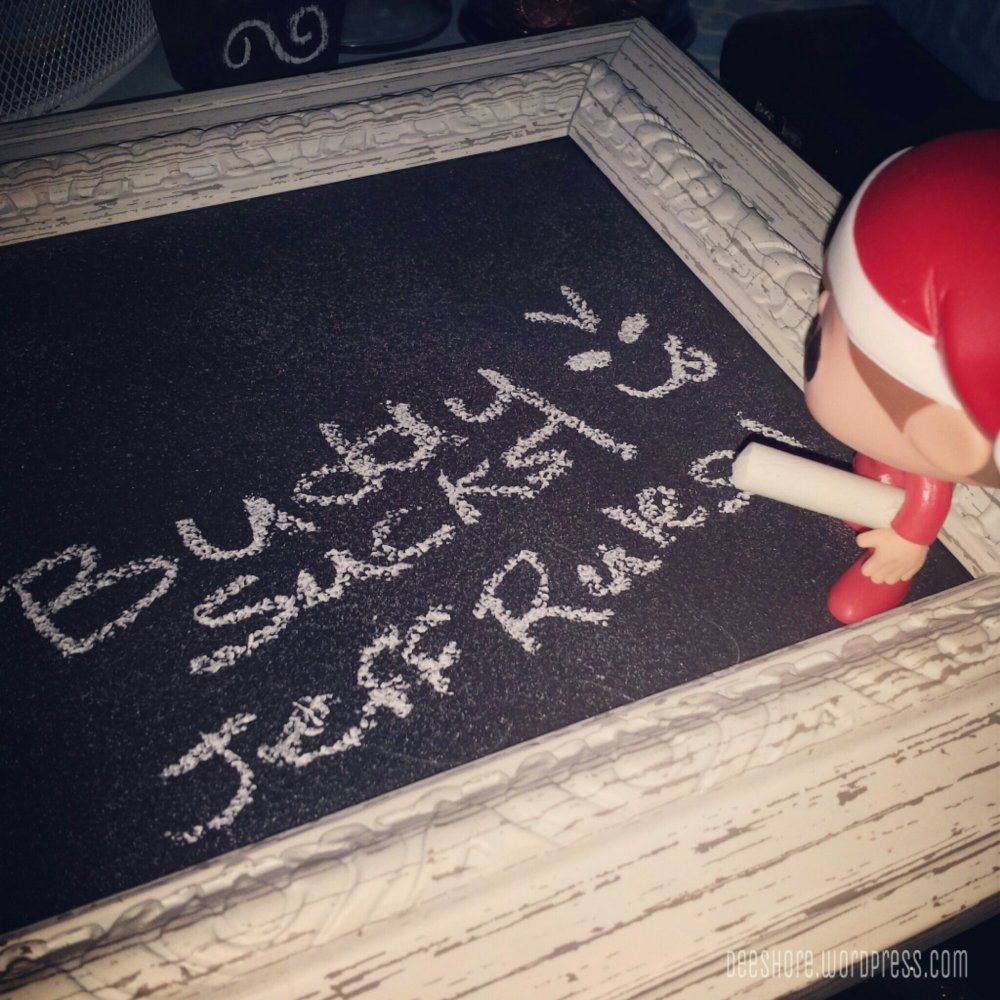 Buddy
sucks!
Jeff Rules!
DEESHORE.WORDPRESS.COM